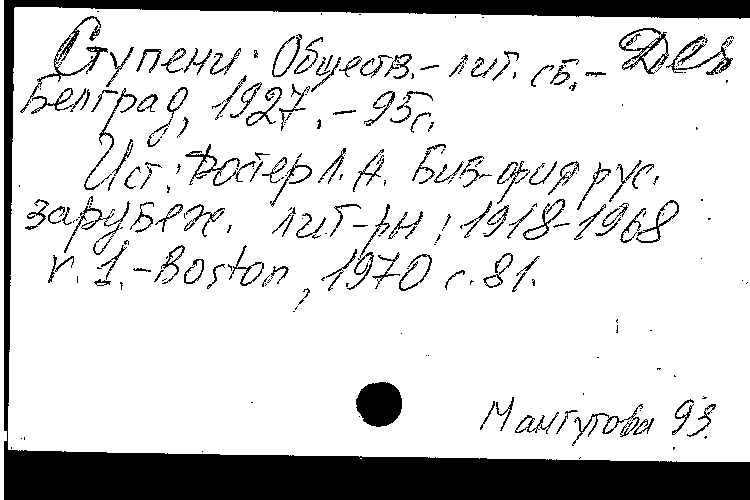 Ступени: Обществ.- лит. сб.- Des
Белград, 1927. - 95с.
Ист.: Фостер Л. А. Биб-фия рус.
зарубеж. лит-ры, 1918-1968
т. 1.-Boston, 1970 с. 81.
Мангутова 93